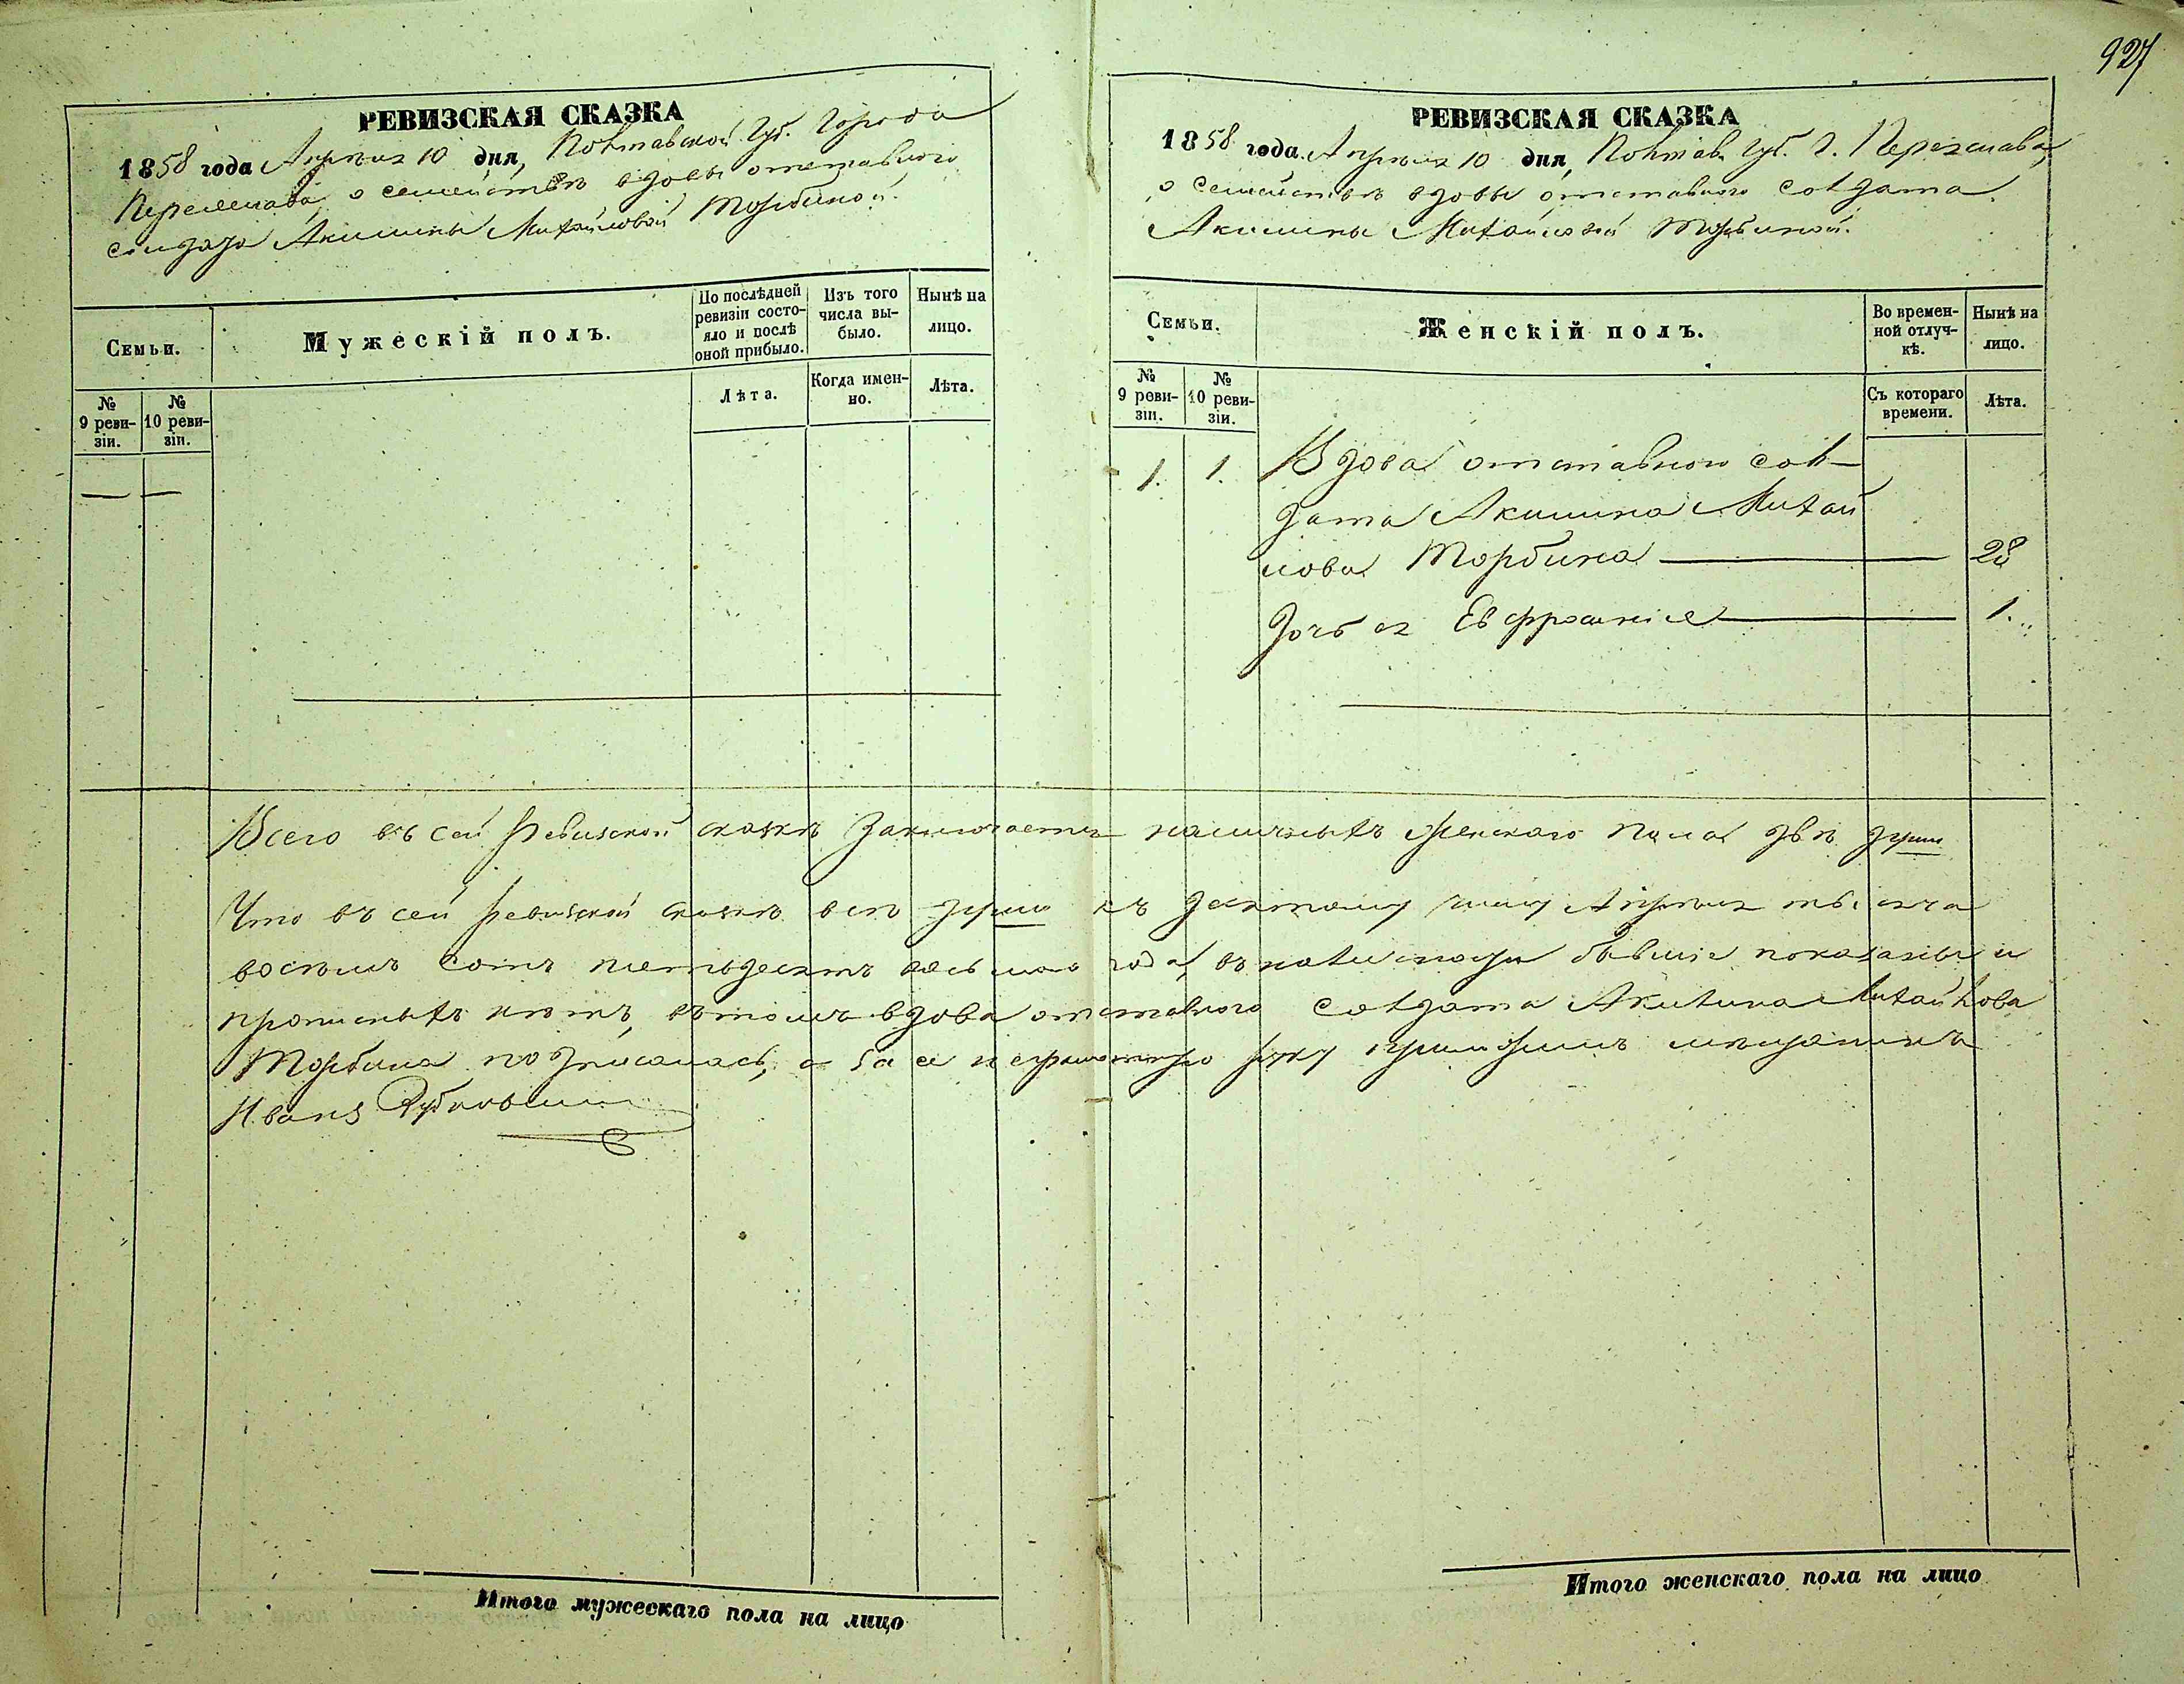 927
РЕВИЗСКАЯ СКАЗКА
1858 года Апрѣля 10 дня, Полтавской Губ. Города
Переяслава, о семействѣ вдовы отставного
солдата Акилины Михайловой Торбиной.
Семьи.
Мужескій полъ.
По послѣдней ревизіи состо-
яло и послѣ
оной прибыло.
Изъ того
числа вы-
было.
Нынѣ на
лицо.
№
9 реви-
зіи.
№
10 реви-
зіи.
Лѣта.
Когда имен-
но.
Лѣта.
— —
РЕВИЗСКАЯ СКАЗКА
1858 года Апрѣля 10 дня, Полтав. Губ. Г. Переяслава,
о семействѣ вдовы отставного солдата
Акилины Михайловой Торбиной.
Семьи.
Женскій полъ.
Во времен-
ной отлуч-
кѣ.
Нынѣ на
лицо.
№
9 реви-
зіи.
№
10 реви-
зіи.
Съ котораго
времени.
Лѣта.
1. 1. Вдова отставного сол-
дата Акилина Михай
лова Торбина — 28
Дочь ея Евфросинія — 1.
Всего въ сей Ревизской сказкѣ заключается наличныхъ женскаго пола двѣ души
Что въ сей Ревизской сказкѣ всѣ души къ десятому числу Апрѣля тысяча
восемь сотъ пятьдесятъ восьмого года, въ наличности бывшіе показаны и
прописныхъ нѣтъ, въ томъ вдова отставного солдата Акилина Михайлова
Торбина подписалась, а за ее неграмотную руку приложилъ мѣщанинъ
Иванъ
Итого мужескаго пола на лицо
Итого женскаго пола на лицо